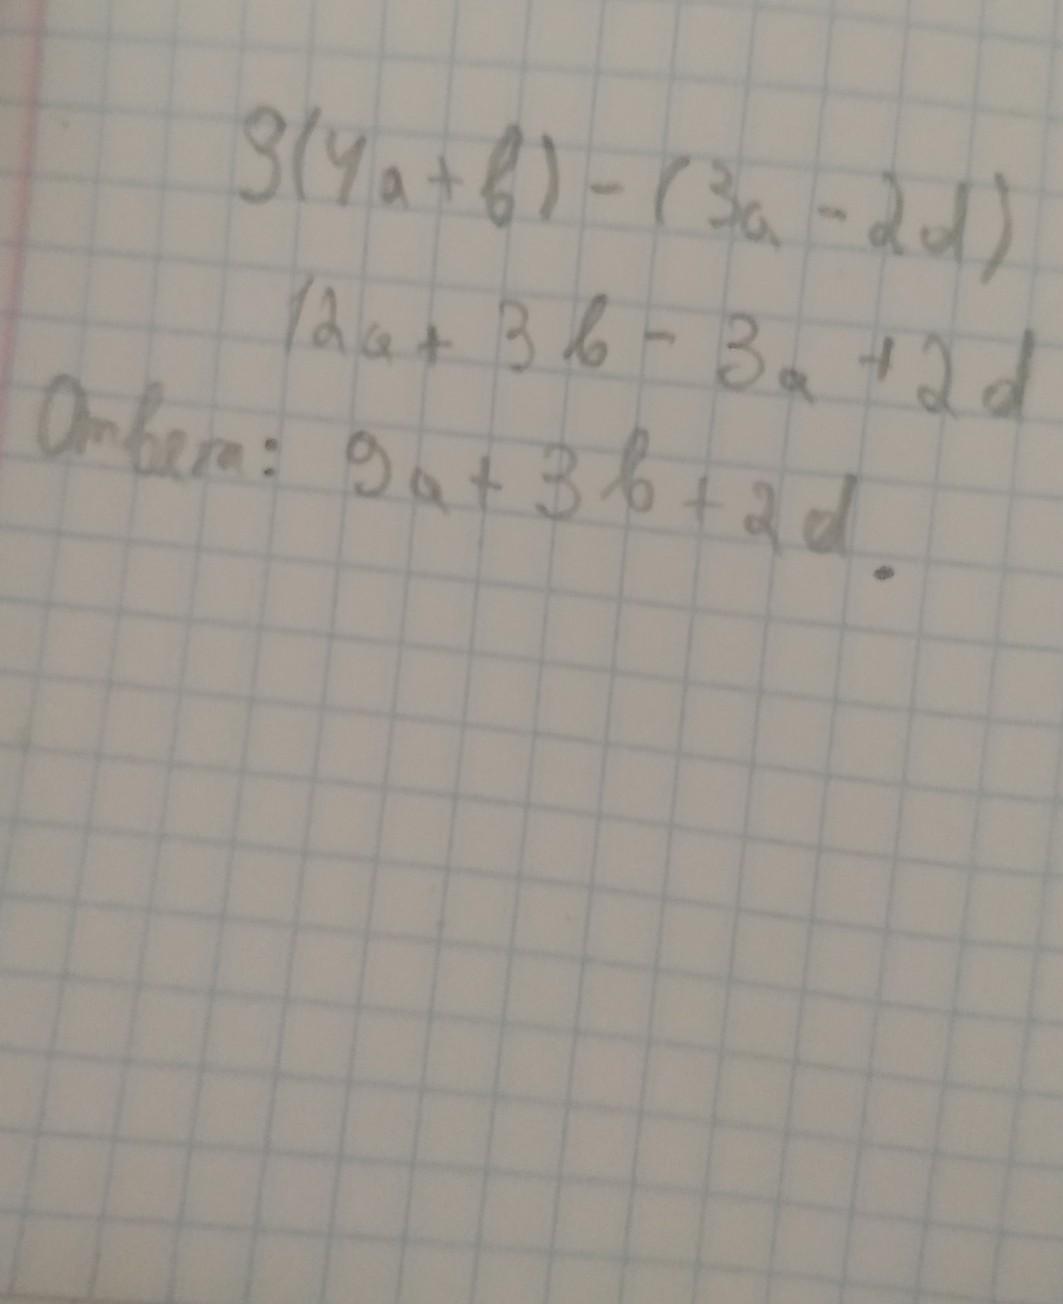 3(4a+b)-(3a-2d)
12a+3b-3a+2d
Ответ: 9a+3b+2d.